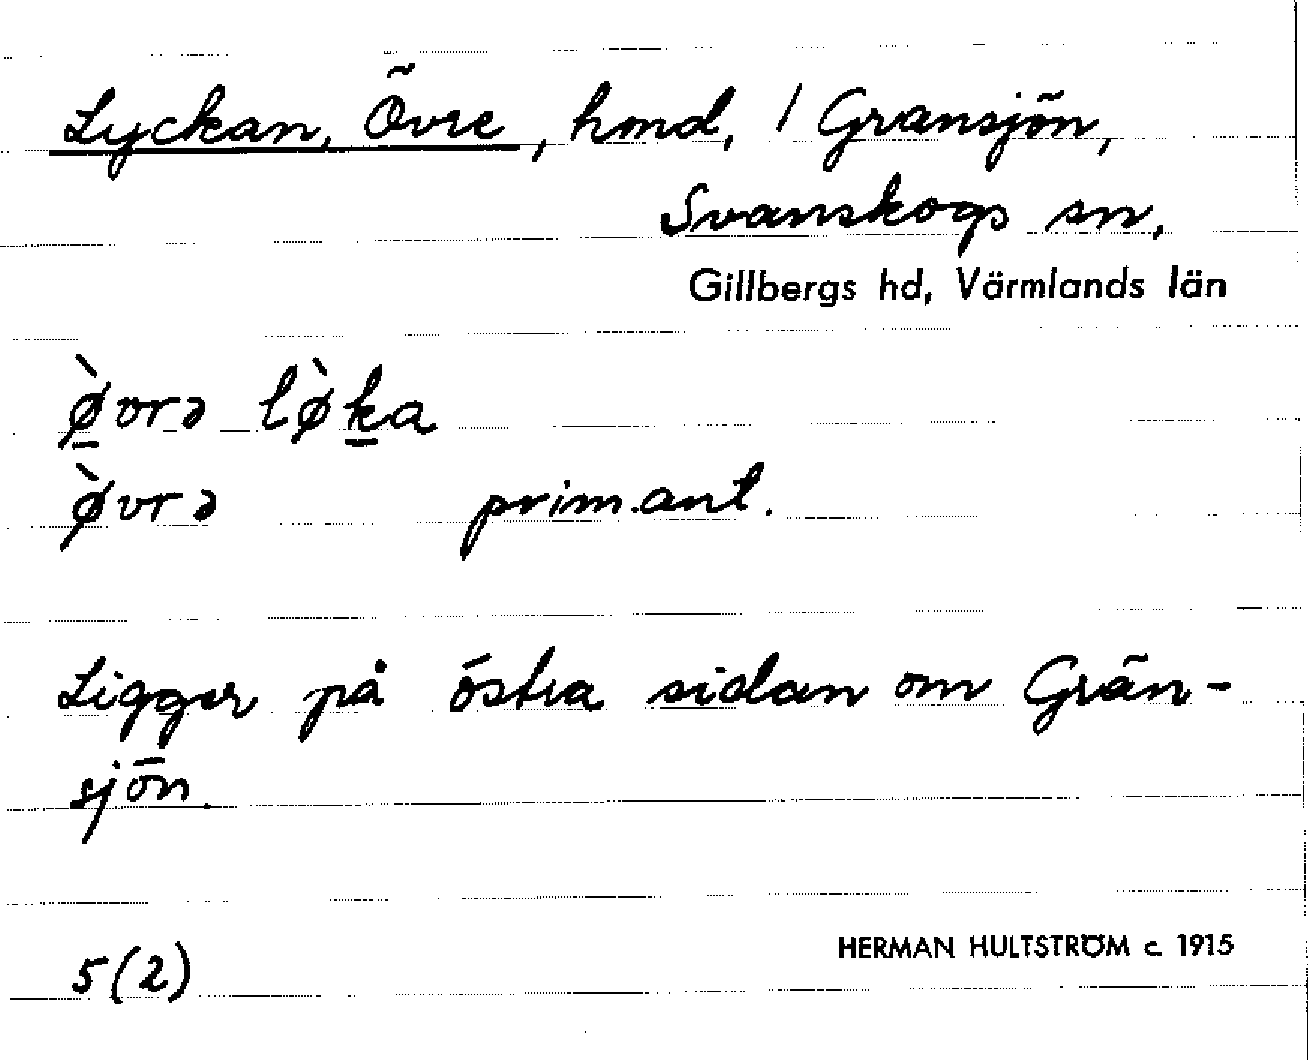 Lyckan, Övre, hmd, / Gransjön,
Svanskogs sn,
Gillbergs hd, Värmlands län
ø̲̀vrə lø̀k̲a
ø̀vrə prim.ant.
Ligger på östra sidan om Grän-
sjön.
5(2)
HERMAN HULTSTRÖM c. 1915